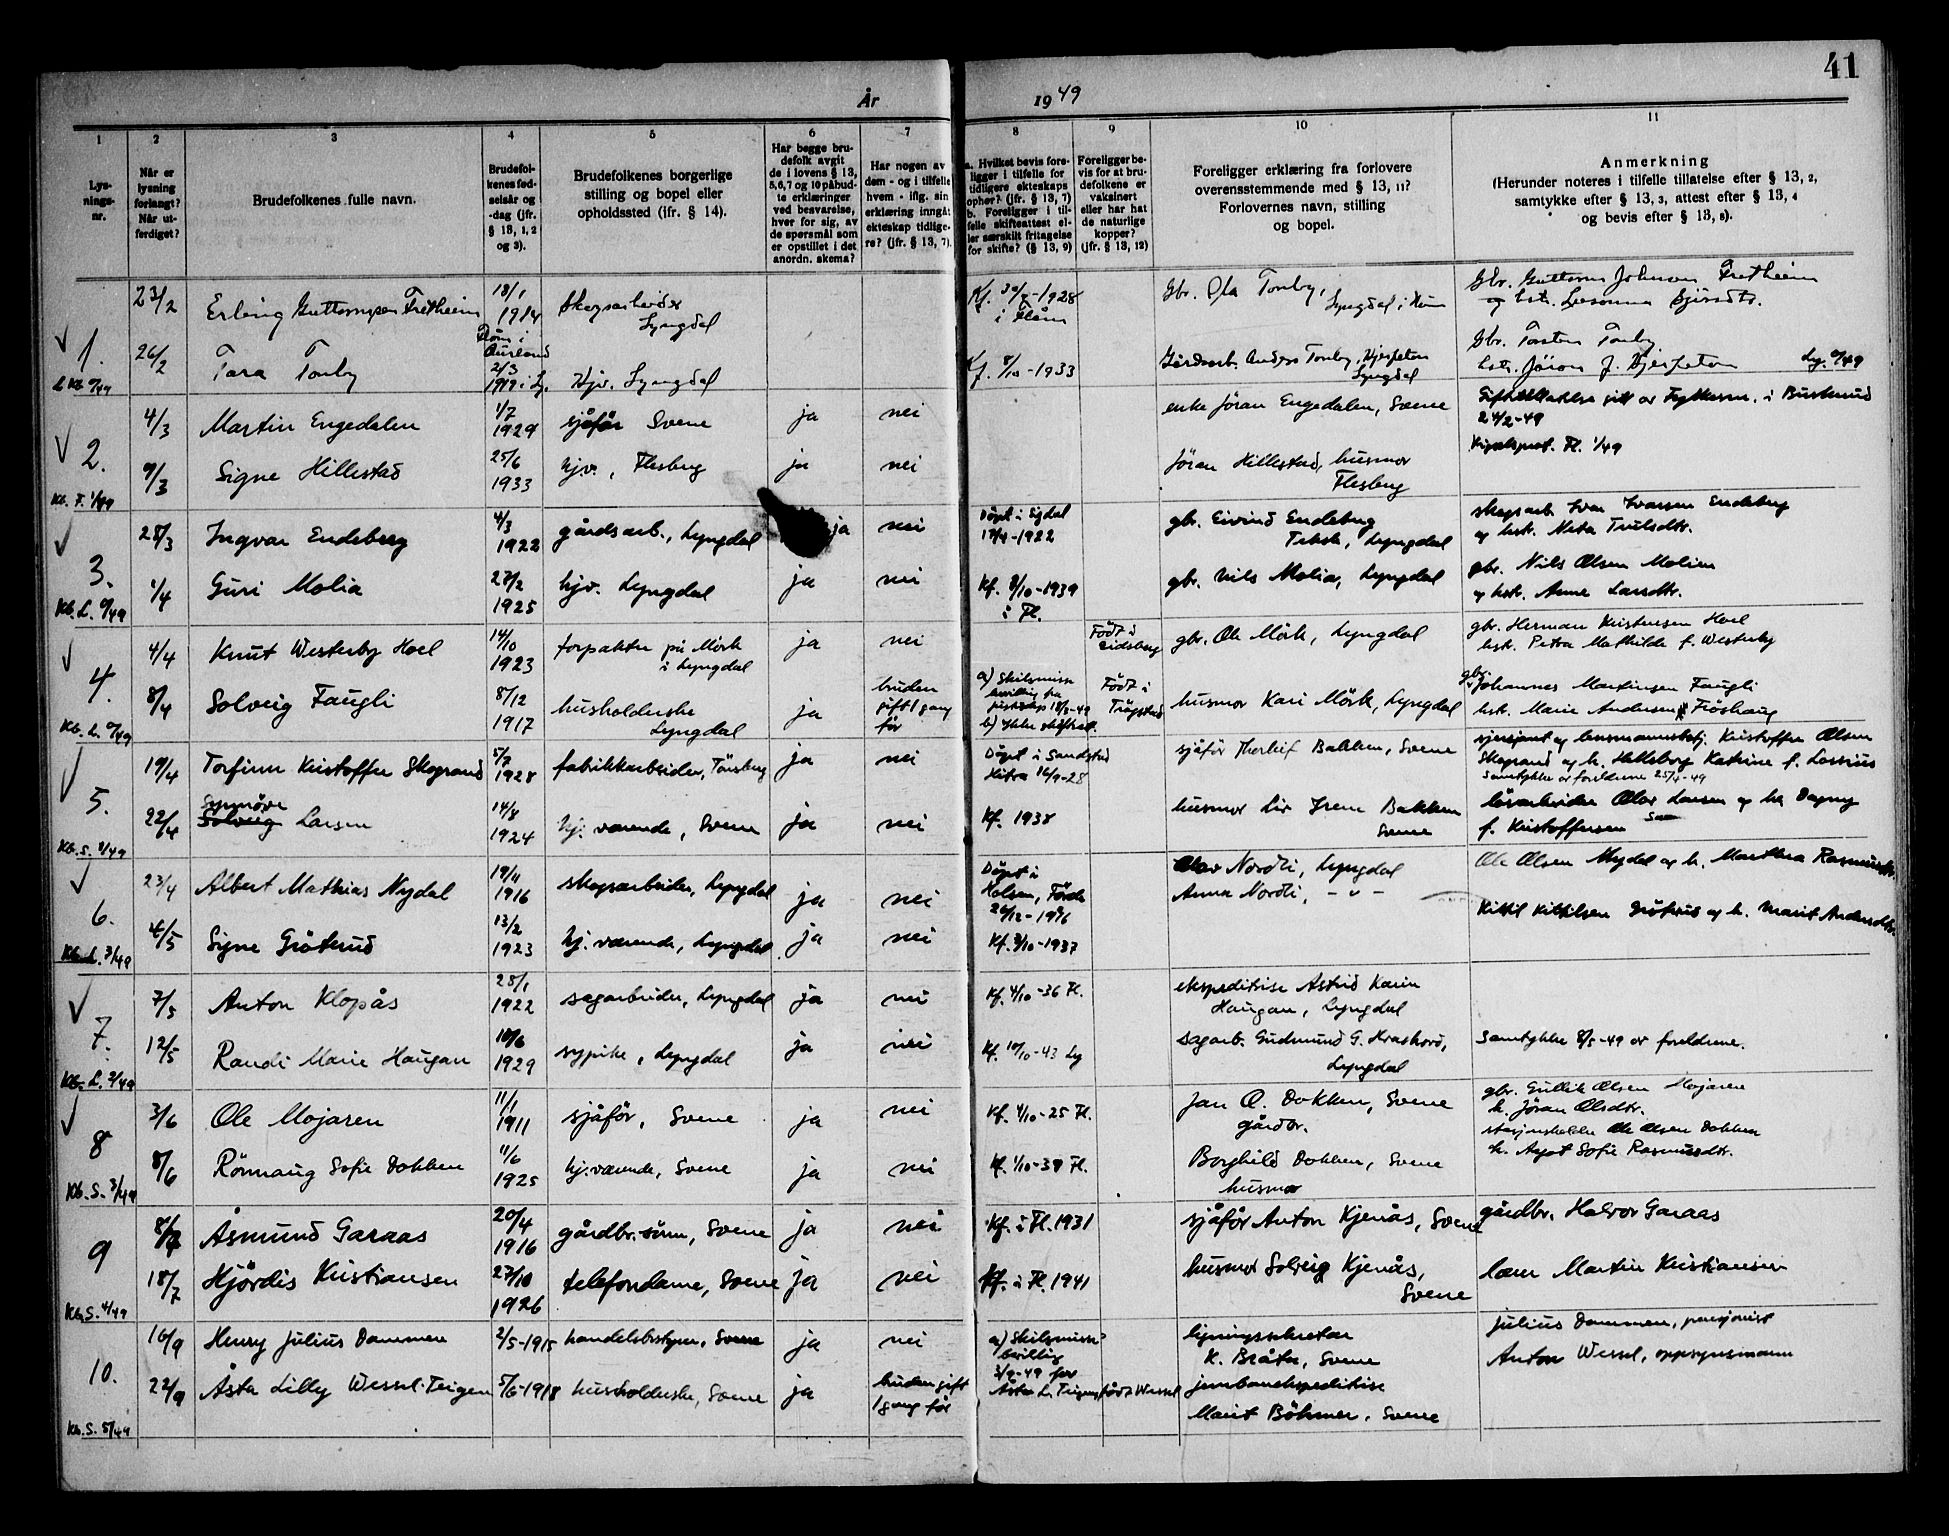 41
År 1949
1 2 3 4 5 6 7 8 9 10 11
Lys-
nings-
nr.
Når er
lysning
forlangt?
Når ut-
ferdiget?
Brudefolkenes fulle navn.
Brudefol-
kenes fød-
selsår og
-dag (jfr.
§ 13, 1, 2
og 3).
Brudefolkenes borgerlige
stilling og bopel eller
opholdssted (jfr. § 14).
Har begge bru-
defolk avgit
de i lovens § 13,
5, 6, 7 og 10 påbud-
te erklæringer
ved besvarelse,
hver for sig, av
de spørsmål som
er opstillet i det
anordn. skema?
Har nogen av
dem - og i tilfelle
hvem - iflg. sin
erklæring inngått
ekteskap tidlige-
re? (jfr. § 13, 7).
a. Hvilket bevis fore-
ligger i tilfelle for
tidligere ekteskaps
ophør? (jfr. § 13, 7)
b. Foreligger i til-
felle skifteattest el-
ler særskilt fritagelse
for skifte? (§ 13, 9)
Foreligger be-
vis for at bru-
defolkene er
vaksinert
eller har hat
de naturlige
kopper?
(jfr. § 13, 12)
Foreligger erklæring fra forlovere
overensstemmende med § 13, 11?
Forlovernes navn, stilling
og bopel.
Anmerkning
(Herunder noteres i tilfelle tillatelse efter § 13, 2,
samtykke efter § 13, 3, attest efter § 13, 4
og bevis efter § 13, 8).
1.
23/2 Erling Guttormsen Fretheim 18/1 1914 Flåm i Aurland Skogsarbeider Lyngdal Kf. 30/9-1928 i Flåm Gbr. Ola Tonby, Lyngdal i Num Gbr. Guttorm Johnsen Fretheim
26/2 Tara Tonby 2/3 1919 i Ly. Hjv. Lyngdal Kf. 8/10-1933 Gårdarb. Anders Tonby, Hjerpeton Lyngdal Gbr. Torsten Tonby
hstr. Jöron J. Hjerpeton
2. Kb. F. 1/49
4/3 Martin Engedalen 1/7 1929 sjåfør Svene ja nei enke Jöran Engedalen, Svene av Fylkesm. i Buskerud
24/2-49
9/3 Signe Hillestad 25/6 1933 hjv., Flesberg ja nei Jöran Hillestad, husmor Flesberg Fl. 1/49
3.
28/3 Ingvar Endeberg 4/3 1922 gårdsarb., Lyngdal ja nei Döpt i Sigdal 17/4-1922 gbr. Eivind Endeberg Lyngdal skogsarb. Ivar Ivarsen Endeberg
og hstr. Neta Trulsdtr.
1/4 Guri Molia 27/2 1925 hjv. Lyngdal ja nei Kf. 8/10-1939 i Fl. gbr. Nils Molia, Lyngdal gbr. Nils Olsen Molien
og hstr. Anne Larsdtr.
4.
4/4 Knut Westerby Hoel 14/10 1923 forpakter på Mörk i Lyngdal ja nei Född i Eidsberg gbr. Ole Mörk, Lyngdal gbr. Herman Kristensen Hoel
hstr. Petra Mathilde f. Westerby
8/4 Solveig Faugli 8/12 1917 husholderske Lyngdal ja bruden gift 1 gang før a) Skilsmisse bevillig fra Född i Trögstad husmor Kari Mörk, Lyngdal gbr. Johannes Martinsen Faugli
hstr. Marie Andersen f. Fröshaug
5. Kb. S. 1/49
19/4 Torfinn Kristoffer Skogrand 5/7 1928 fabrikkarbeider, Tönsberg ja nei Döpt i Sandstad Hitra 16/9-28 sjåför Therleif Bakken, Svene og lensmannsbetj. Kristoffer Olsen
Skogrand og h. Hilleborg Katrine f. Lossius
Samtykke av foreldrene 25/4-49
22/4 Synnöve Larsen 14/8 1924 hj. værende, Svene ja nei Kf. 1938 husmor Liv Irene Bakken Svene Olav Larsen og h. Dagny
f. Kristoffersen
6. Kb. L. 3/49
23/4 Albert Mathias Nydal 19/11 1916 skogsarbeider, Lyngdal ja nei Döpt i Holsen, Förde 26/12-1916 Olav Nordli, Lyngdal Ole Olsen Nydal og h. Marthea Rasmusdtr.
4/5 Signe Gröterud 13/2 1923 hj. værende, Lyngdal ja nei Kf. 3/10-1937 Anna Nordli, - " - Kittil Kittilsen Gröterud og h. Marit Andersdtr.
7. Kb. L. 2/49
7/5 Anton Klopås 25/1 1922 sagarbeider, Lyngdal ja nei Kf. 4/10-36 Fl. ekspeditrise Astrid Karin Haugan, Lyngdal
12/5 Randi Marie Haugan 18/6 1929 sypike, Lyngdal ja nei Kf. 10/10-43 Ly sagarb. Gudmund G. Lyngdal Samtykke 8/5-49 av foreldrene.
8 Kb. S. 3/49
3/6 Ole Mojaren 11/1 1911 sjåför, Svene ja nei Kf. 4/10-25 Fl. Jan O. Dokken, Svene gårdbr. gbr. Gullik Olsen Mojaren
h. Jöran Olsdtr.
8/6 Rönnaug Sofie Dokken 11/6 1925 hj.værende, Svene ja nei Kf. 1/10-39 Fl. Borghild Dokken, Svene husmor stasjonsholder Ole Olsen Dokken
h. Agot Sofie Rasmusdtr.
9 Kb. S. 4/49
8/7 Åsmund Garaas 20/4 1916 gårdbr.-sönn, Svene ja nei Kf. i Fl. 1931 sjåför Anton Kjenås, Svene gårdbr. Halvor Garaas
18/7 Hjördis Kristiansen 27/10 1926 telefondame, Svene ja nei Kf. i Fl. 1941 husmor Solveig Kjenås, Svene Martin Kristiansen
10. Kb. S. 5/49
16/9 Henry Julius Dammen 2/5-1915 handelsbestyrer, Svene ja nei a) Skilsmisse bevillig 3/9-49 for ligningssekretær K. Bråta, Svene Julius Dammen, pensjonist
22/9 Åsta Lilly Wessel-Teigen 5/6-1918 husholderske, Svene ja bruden gift 1 gang før Åsta L. Teigen född Wessel jernbaneekspeditrise Marit Böhmer, Svene Anton Wessel, oppsynsmann